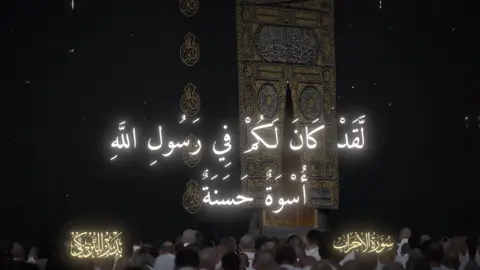 لَّقَدْ كَانَ لَكُمْ فِي رَسُولِ اللَّهِ
أُسْوَةٌ حَسَنَةٌ
سورة الأحزاب